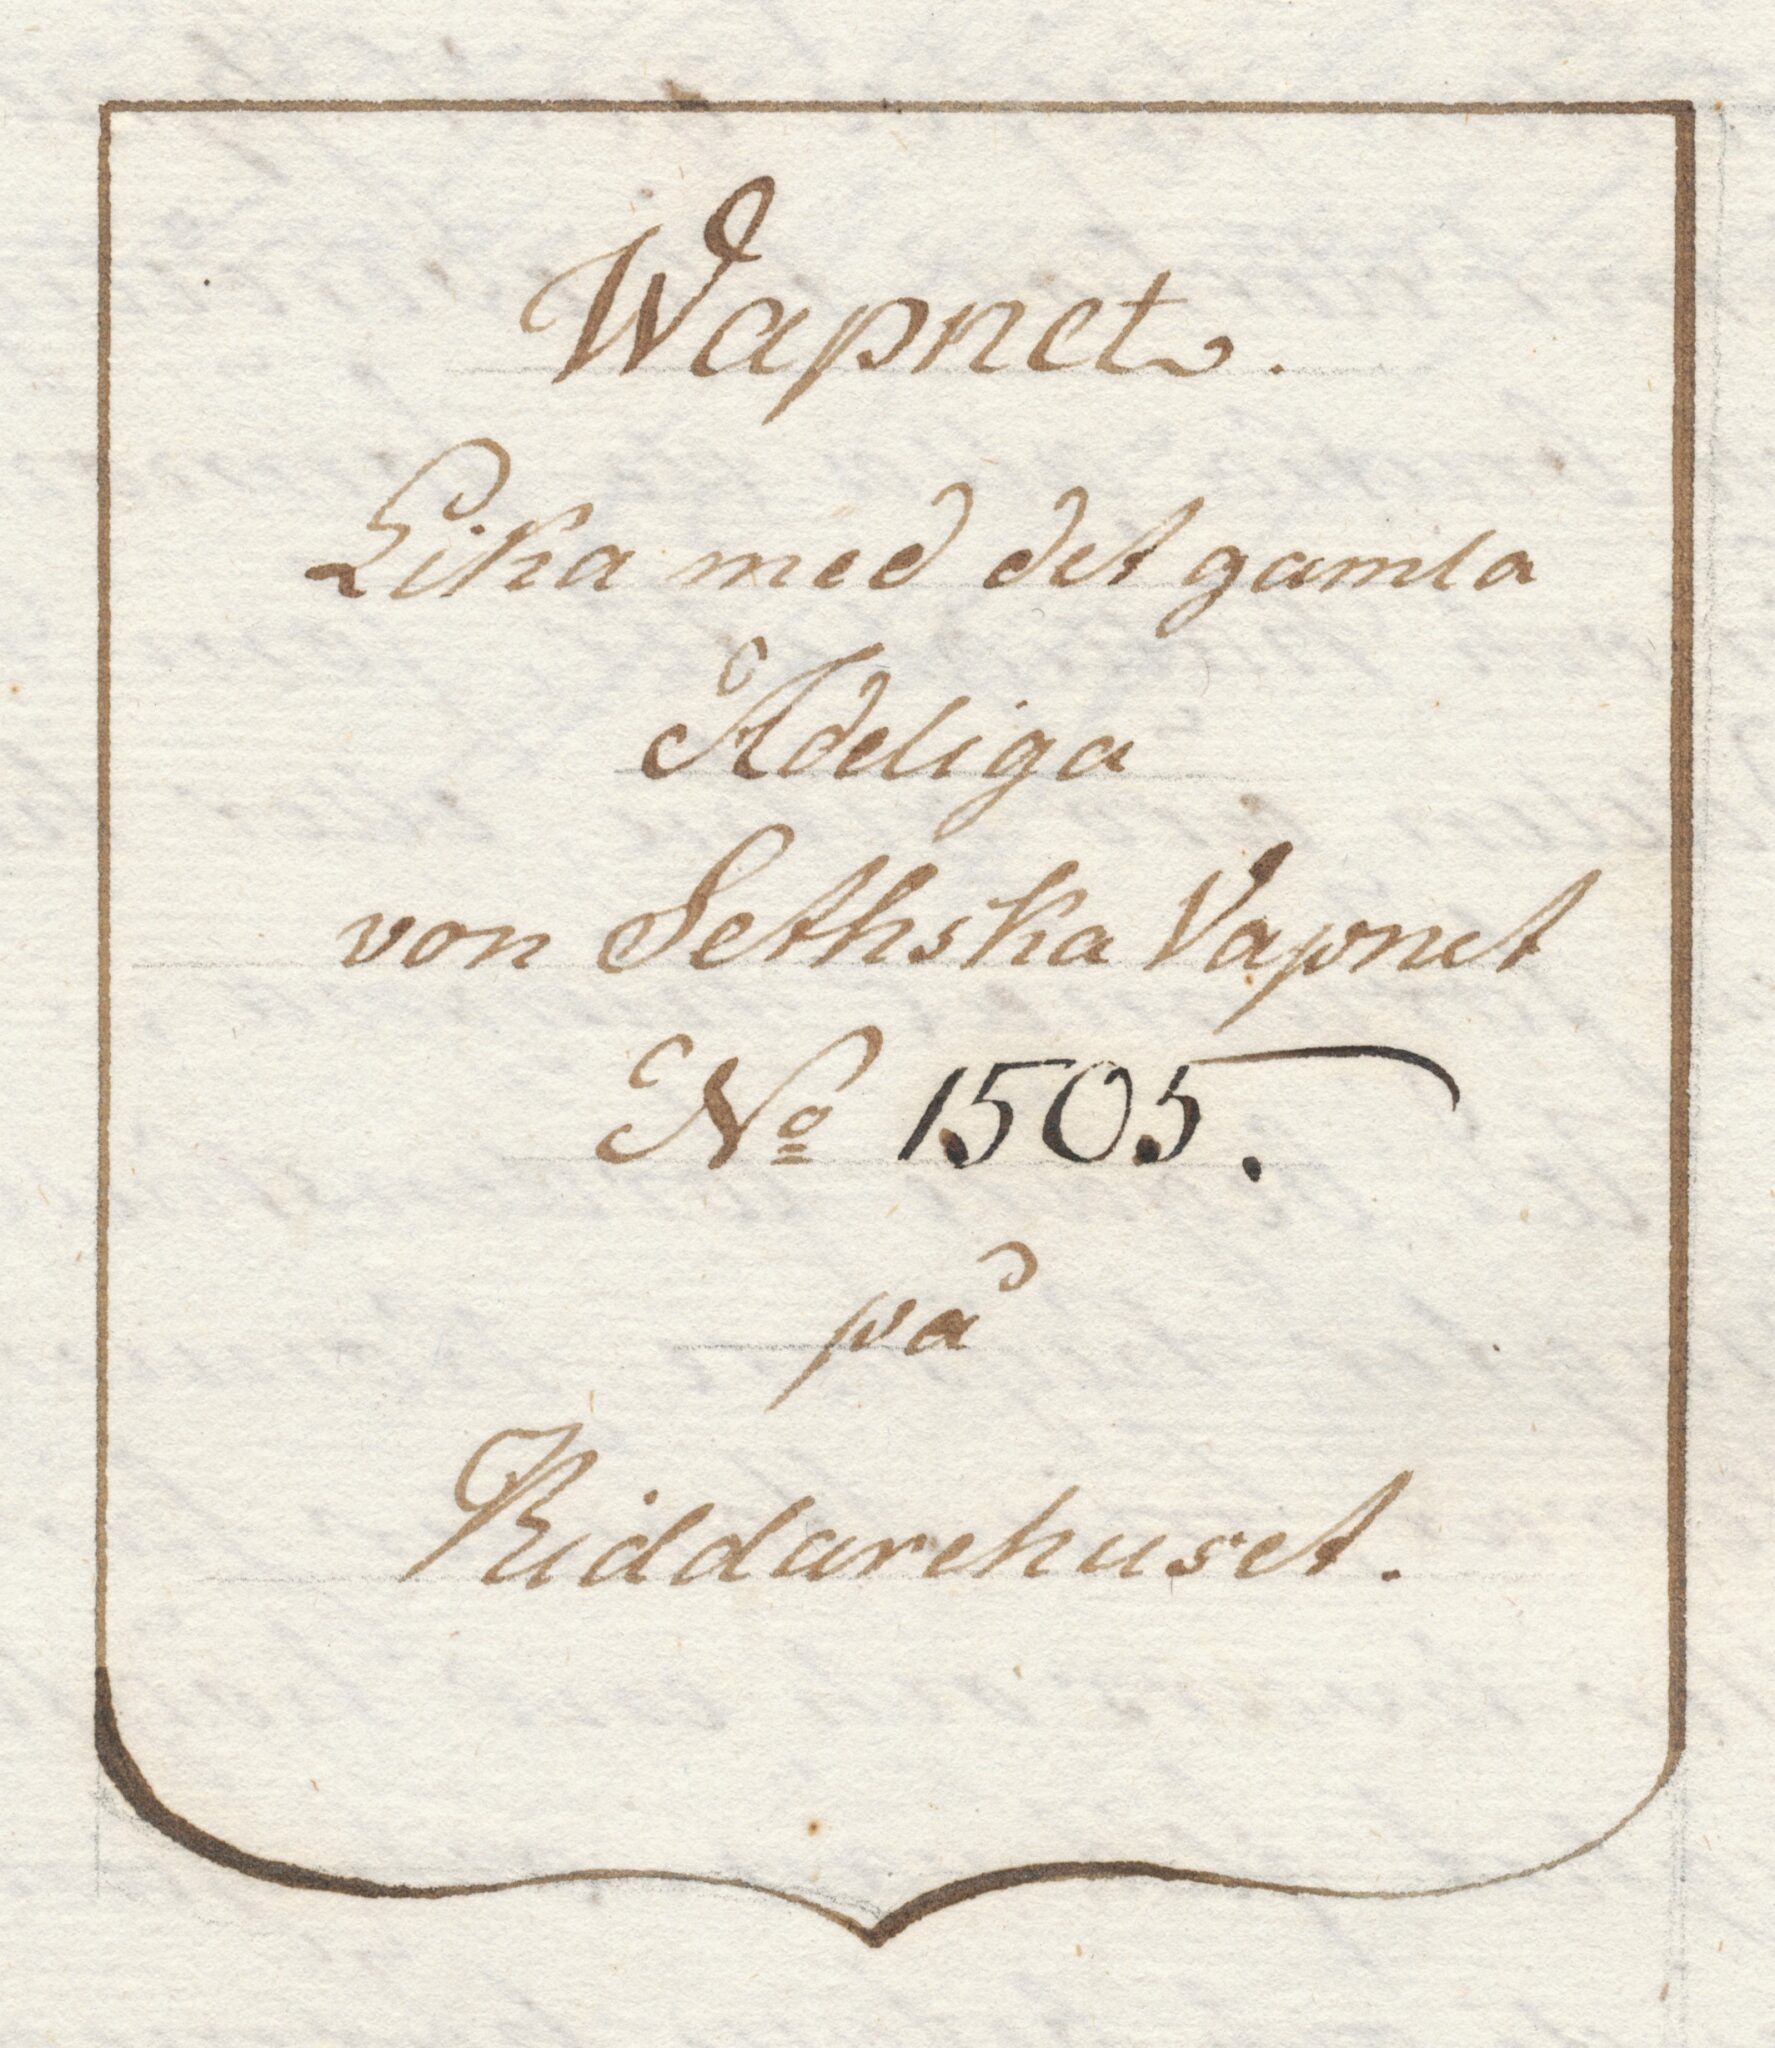 Wapnet.
Lika med det gamla
Adeliga
von Sethska Vapnet
No 1505.
på
Riddarehuset.